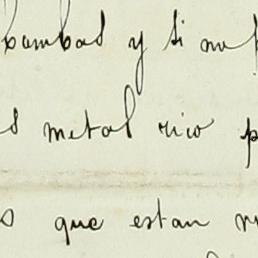 bambas y si no
s metal rico p
s que estan